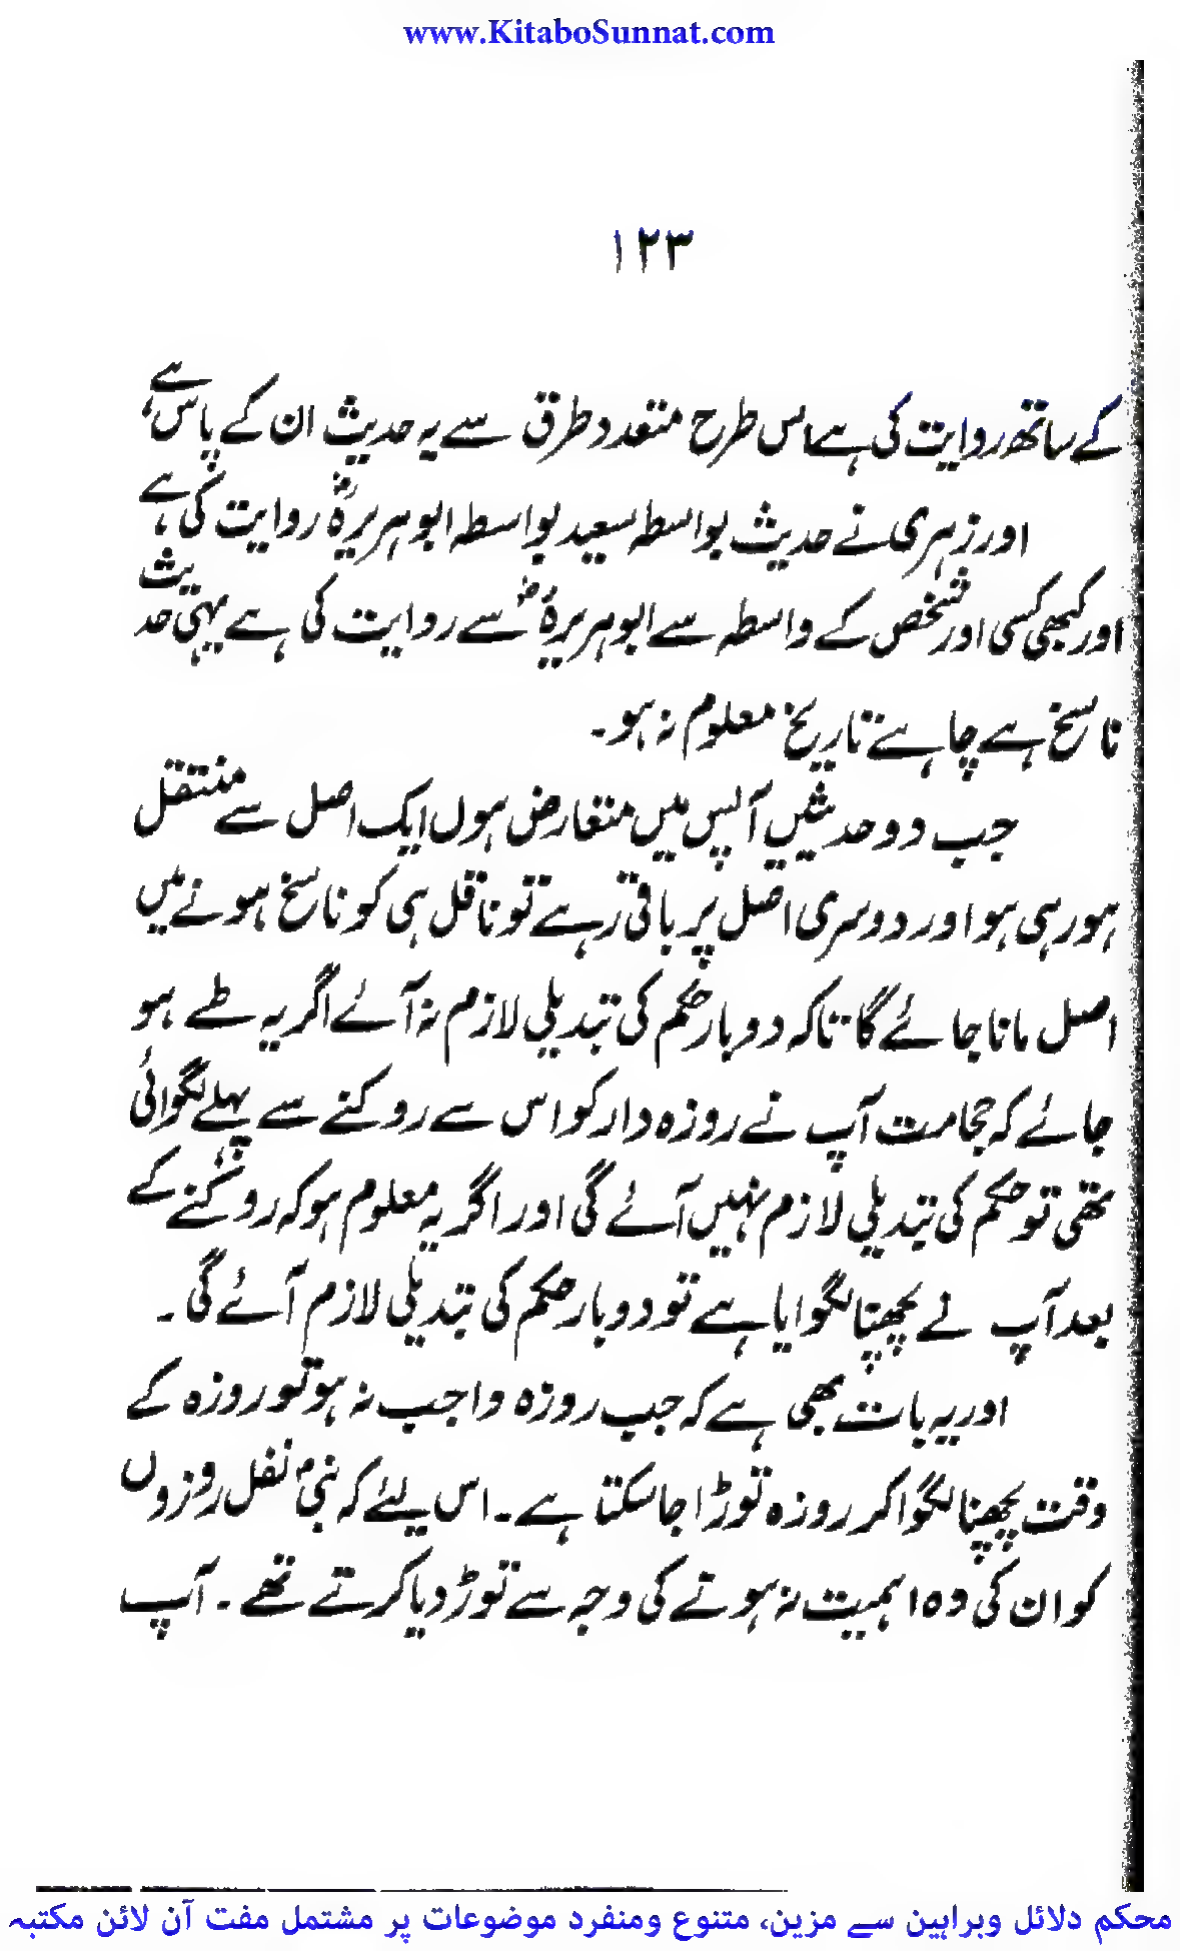 www.KitaboSunnat.com
۱۲۳
کے ساتھ روایت کی ہے اس طرح متعدد طرق سے یہ حدیث ان کے پاس ہے،
اور زہری نے حدیث بواسطہ سعید بواسطہ ابوہریرہؓ روایت کی ہے
اور کبھی کسی اور شخص کے واسطہ سے ابوہریرہؓ سے روایت کی ہے یہی حدیث
ناسخ ہے چاہے تاریخ معلوم نہ ہو۔
جب دو حدیثیں آپس میں متعارض ہوں ایک اصل سے منتقل
ہو رہی ہو اور دوسری اصل پر باقی رہے تو ناقل ہی کو ناسخ ہونے میں
اصل مانا جائے گا تاکہ دوبار حکم کی تبدیلی لازم نہ آئے اگر یہ طے ہو
جائے کہ حجامت آپ نے روزہ دار کو اس سے روکنے سے پہلے لگوائی
تھی تو حکم کی تبدیلی لازم نہیں آئے گی اور اگر یہ معلوم ہو کہ روکنے کے
بعد آپ نے پچھنا لگوایا ہے تو دوبار حکم کی تبدیلی لازم آئے گی۔
اور یہ بات بھی ہے کہ جب روزہ واجب نہ ہو تو روزہ کے
وقت پچھنا لگوا کر روزہ توڑا جا سکتا ہے۔ اس لیئے کہ نبیؐ نفل روزوں
کو ان کی وہ اہمیت نہ ہونے کی وجہ سے توڑ دیا کرتے تھے۔ آپ
محکم دلائل وبراہین سے مزین، متنوع ومنفرد موضوعات پر مشتمل مفت آن لائن مکتبہ